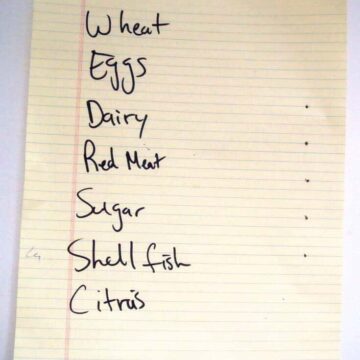 Wheat
Eggs
Dairy
Red Meat
Sugar
Shell fish
Citrus